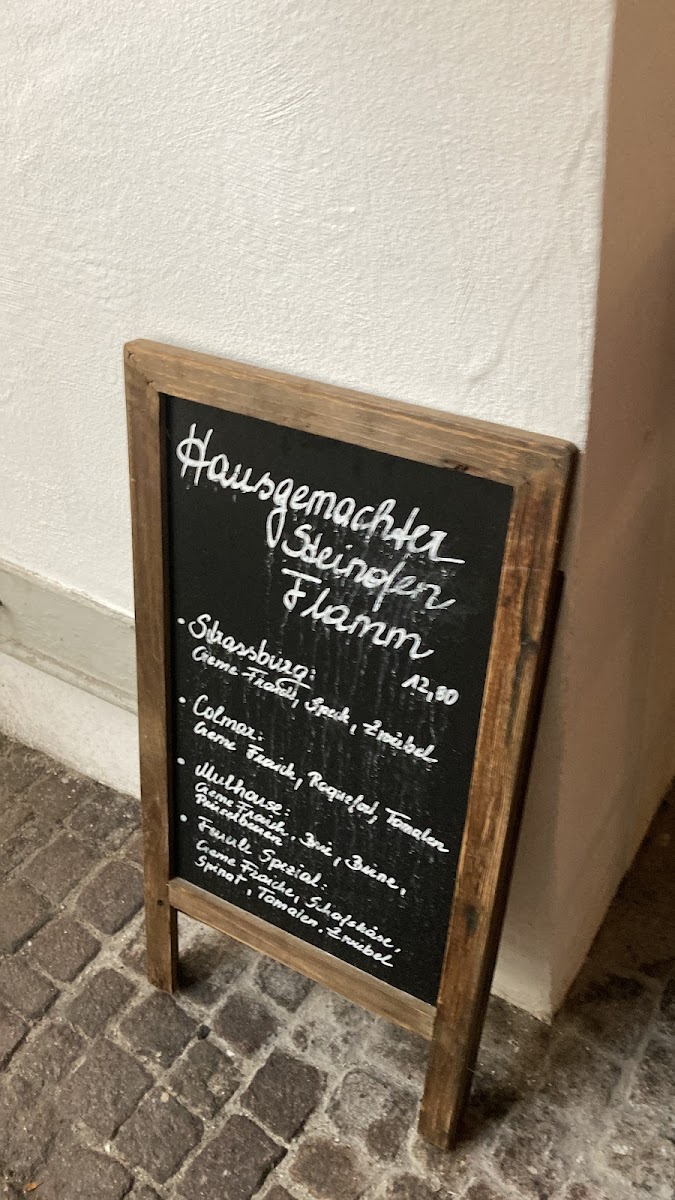 Hausgemachter
Steinofen
Flamm
• Strassburg: 12,80
Creme Fraich, Speck, Zwiebel
• Colmar:
Creme Fraich, Roquefod, Tomaten
• Mulhouse:
Creme Fraich, Brie, Birne,
Preiselbeeren
• Spezial:
Creme Fraiche, Schafskäse,
Spinat, Tomaten, Zwiebel